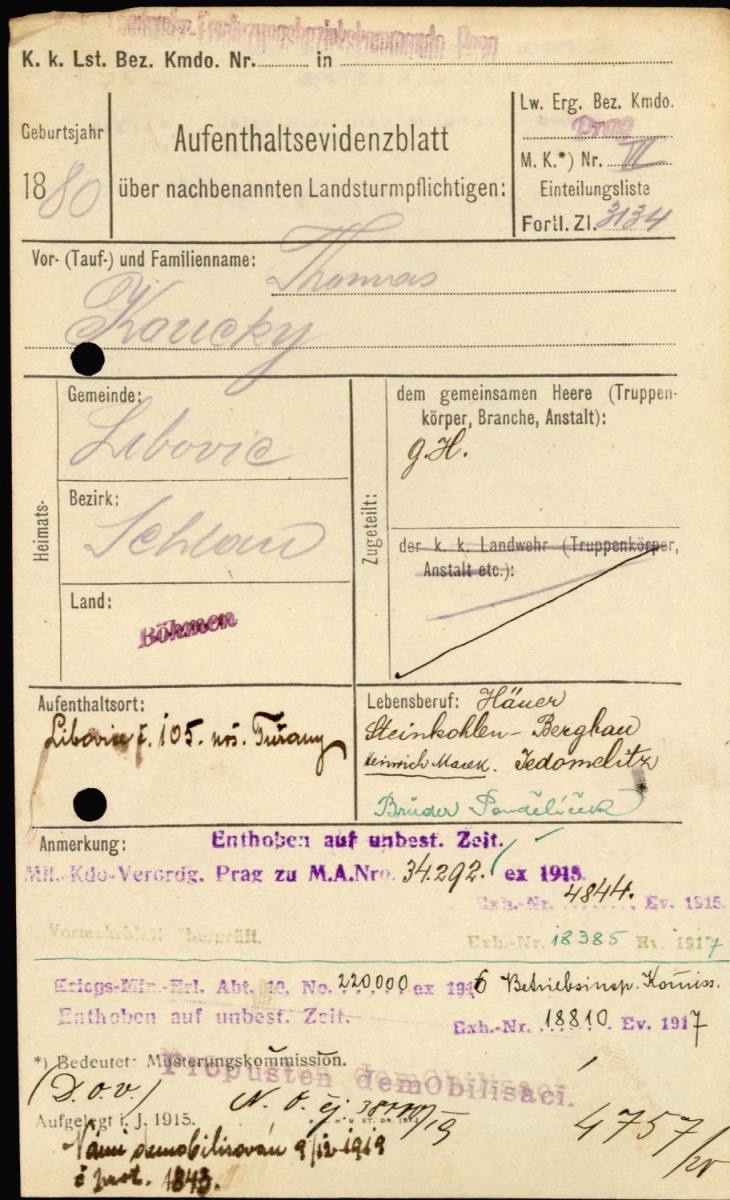 Landwehr-Ergänzungsbezirkskommando Prag
K. k. Lst. Bez. Kmdo. Nr. in
Geburtsjahr
1880
Aufenthaltsevidenzblatt
über nachbenannten Landsturmpflichtigen:
Lw. Erg. Bez. Kmdo.
Prag
M. K.*) Nr. VI
Einteilungsliste
Fortl. Zl. 3134
Vor- (Tauf-) und Familienname: Thomas
Koucky
Heimats-
Gemeinde:
Libovic
Bezirk:
Schlan
Land:
Böhmen
Zugeteilt:
dem gemeinsamen Heere (Truppen-
körper, Branche, Anstalt):
g.H.
der k. k. Landwehr (Truppenkörper,
Anstalt etc.):
Aufenthaltsort:
Libovic č. 105. Tuřany
Lebensberuf: Häuer
Steinkohlen- Bergbau
Heinrich Marek. Jedomelitz
Brüder
Anmerkung:
Enthoben auf unbest. Zeit.
Mil.-Kdo-Verordg. Prag zu M.A.Nro. 34.292. ex 1915.
Exh.-Nr. 4844. Ev. 1915.
Vormerkblatt überprüft.
Exh.-Nr. 18385 Ev. 1917
Kriegs-Min.-Erl. Abt. 10, No. 220000 ex 1916 Betriebsinsp. Komiss.
Enthoben auf unbest. Zeit.
Exh.-Nr. 18810 Ev. 1917
*) Bedeutet: Musterungskommission.
Propuštěn demobilisací.
(D. o. v.)
Aufgelegt i. J. 1915.
4757/20
demobilisován 9/12 1919